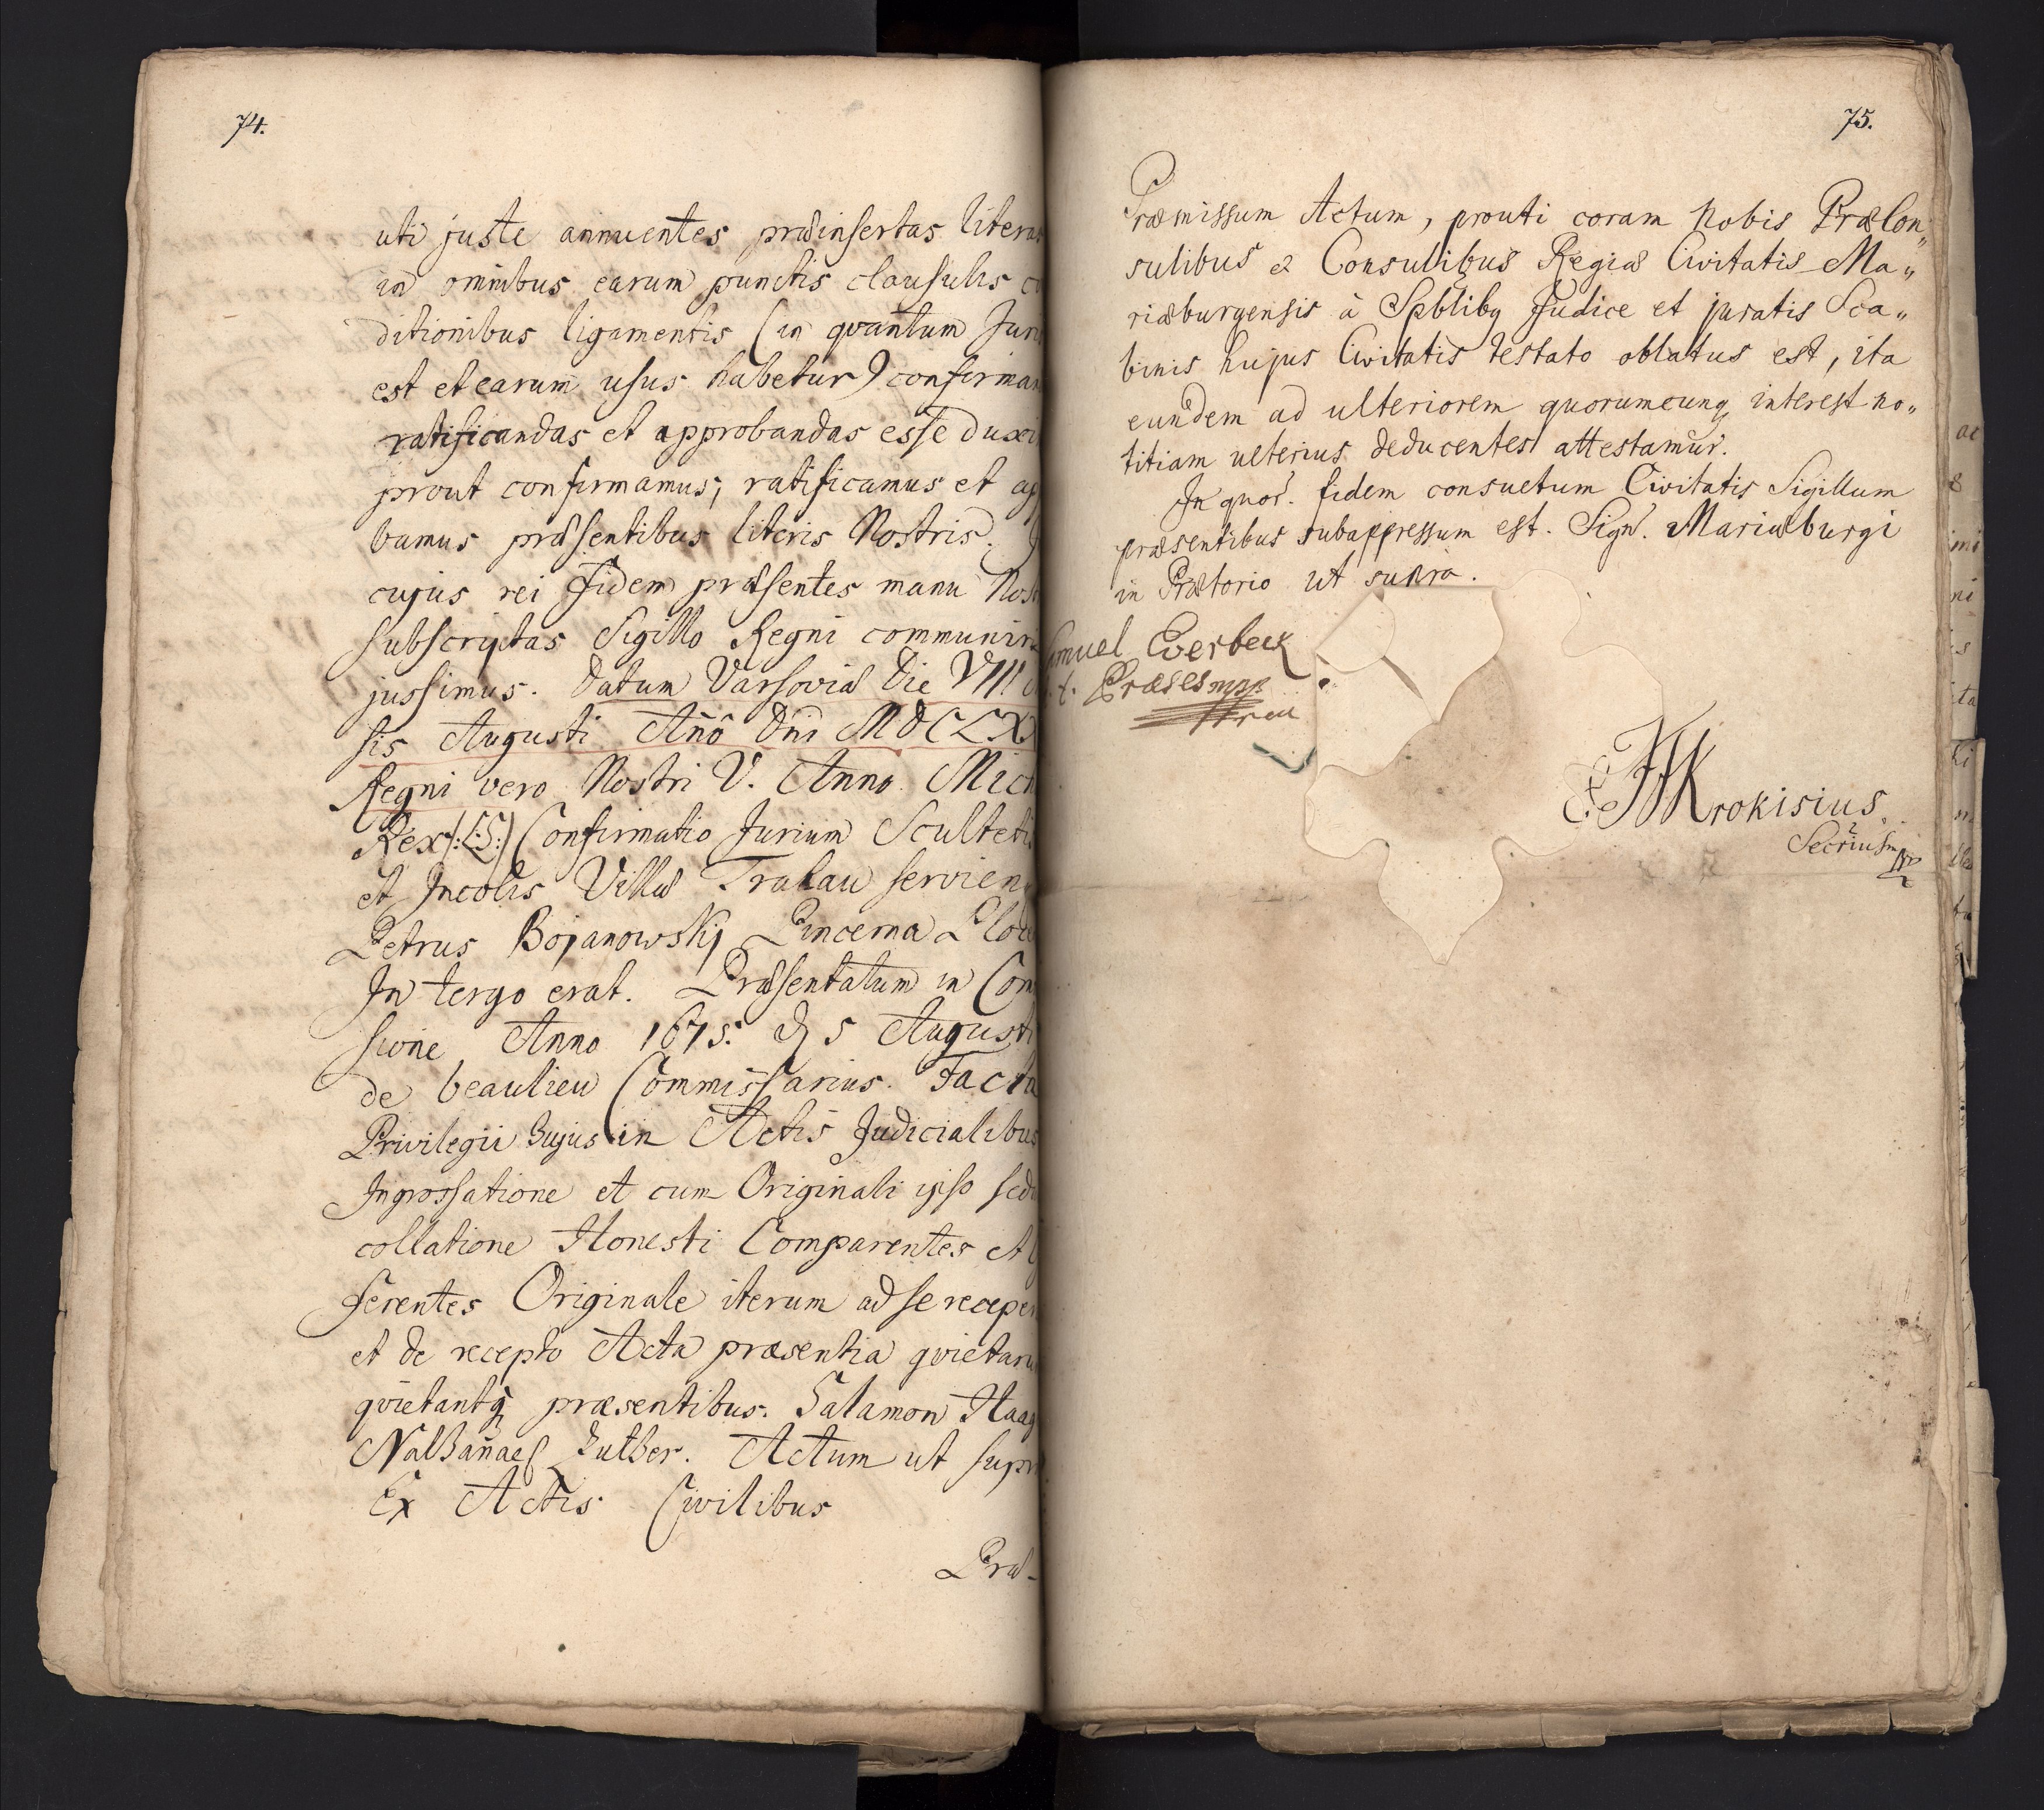 74.
uti juste annuentes præinsertas literas
in omnibus earum punctis clausulis co
ditionibus ligamentis (in qvantum Juri
est et earum usus habetur) confirman
ratificandas et approbandas esse duxi
prout confirmamus, ratificamus et ap
bamus præsentibus literis Nostris.
cujus rei Fidem præsentes manu Nost
subscriptas Sigillo Regni communiri
jussimus. Datum Varsoviæ Die VIII
sis Augusti Año Dni MDCLXX
Regni vero Nostri V. Anno. Mich
Rex /:L:S:/ Confirmatio Jurium Scultetis
et Incolis Villæ Tralau servien
Petrus Bojanowskj Pincerna Ploce
In tergo erat. Præsentatum in Com
sione Anno 1675. d 5 Augusti
de beaulieu Commissarius. Facta
Privilegii hujus in Actis Judicialibus
Ingrossatione et cum Originali ipso sed
collatione Honesti Comparentes et
ferentes Originale iterum ad se recepe
et de recepto Acta præsentia qvietaru
qvietantq præsentibus. Salamon Haag
Nathanael Luther. Actum ut supr
Ex Actis Civilibus
Præ-
75.
Præmissum Actum, prouti coram Nobis PræCon„
sulibus & Consulibus Regiæ Civitatis Ma„
riæburgensis à Spbliby Judice et juratis Sca„
binis hujus Civitatis testato oblatus est, ita
eundem ad ulteriorem quorumcunq interest no„
titiam ulterius deducentes attestamur.
In quor. fidem consuetum Civitatis Sigillum
præsentibus subappressum est. Sign. Mariæburgi
in Prætorio ut supra.
muel Everbeck
Præses mpp
Krokisius.
Secrius mpp